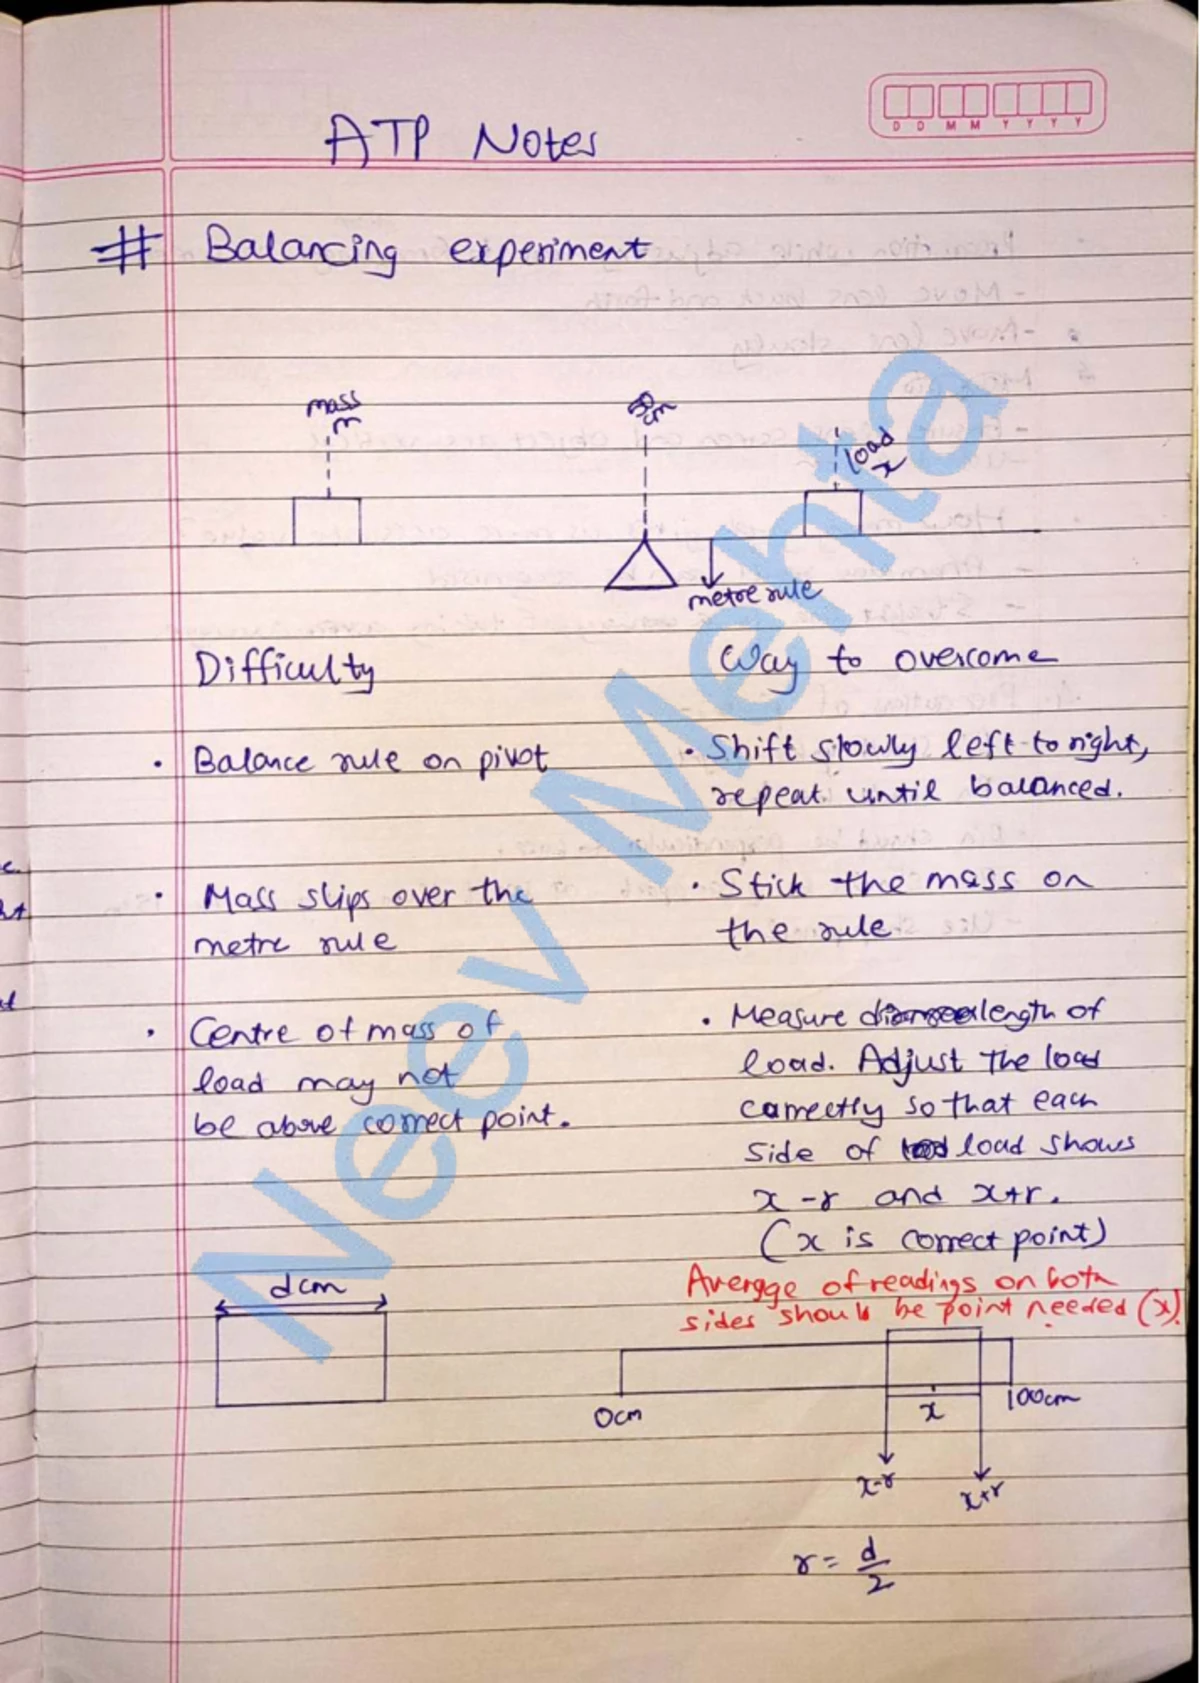 D D M M Y Y Y Y
ATP Notes
# Balancing experiment
mass
m
50cm
load
x
metre rule
Difficulty
Way to overcome
• Balance rule on pivot
• Shift slowly left to right,
repeat until balanced.
• Mass slips over the
metre rule
• Stick the mass on
the rule
• Centre of mass of
load may not
be above correct point.
• Measure length of
load. Adjust the load
correctly so that each
side of load shows
x-r and x+r.
(x is correct point)
Average of readings on both
sides should be point needed (x).
d cm
0cm
x
100cm
x-r
x+r
r = d/2
Neev Mehta